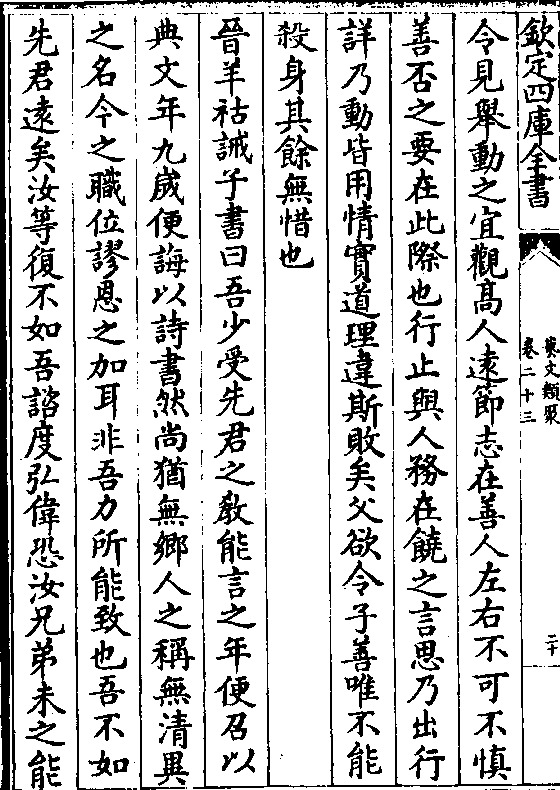 欽定四庫全書
藝文類聚
卷二十三
二十
今見舉動之宜觀髙人遠節志在善人左右不可不慎
善否之要在此際也行止與人務在饒之言思乃出行
詳乃動皆用情實道理違斯敗矣父欲令子善唯不能
殺身其餘無惜也
晉羊祜誡子書曰吾少受先君之教能言之年便召以
典文年九歲便誨以詩書然尚猶無鄉人之稱無清異
之名今之職位謬恩之加耳非吾力所能致也吾不如
先君逺矣汝等復不如吾諮度弘偉恐汝兄弟未之能